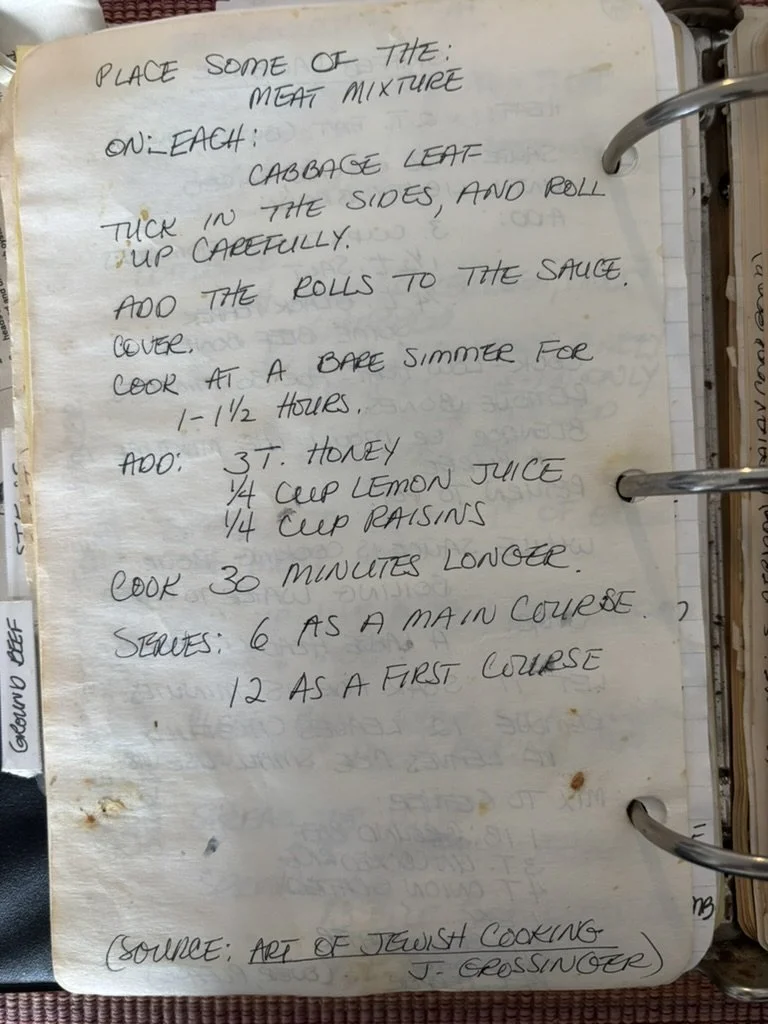 PLACE SOME OF THE:
MEAT MIXTURE
ON EACH:
CABBAGE LEAF
TUCK IN THE SIDES, AND ROLL
UP CAREFULLY.
ADD THE ROLLS TO THE SAUCE.
COVER.
COOK AT A BARE SIMMER FOR
1-1 1/2 HOURS.
ADD: 3 T. HONEY
1/4 CUP LEMON JUICE
1/4 CUP RAISINS
COOK 30 MINUTES LONGER.
SERVES: 6 AS A MAIN COURSE.
12 AS A FIRST COURSE
(SOURCE: ART OF JEWISH COOKING
J. GROSSINGER)
GROUND BEEF